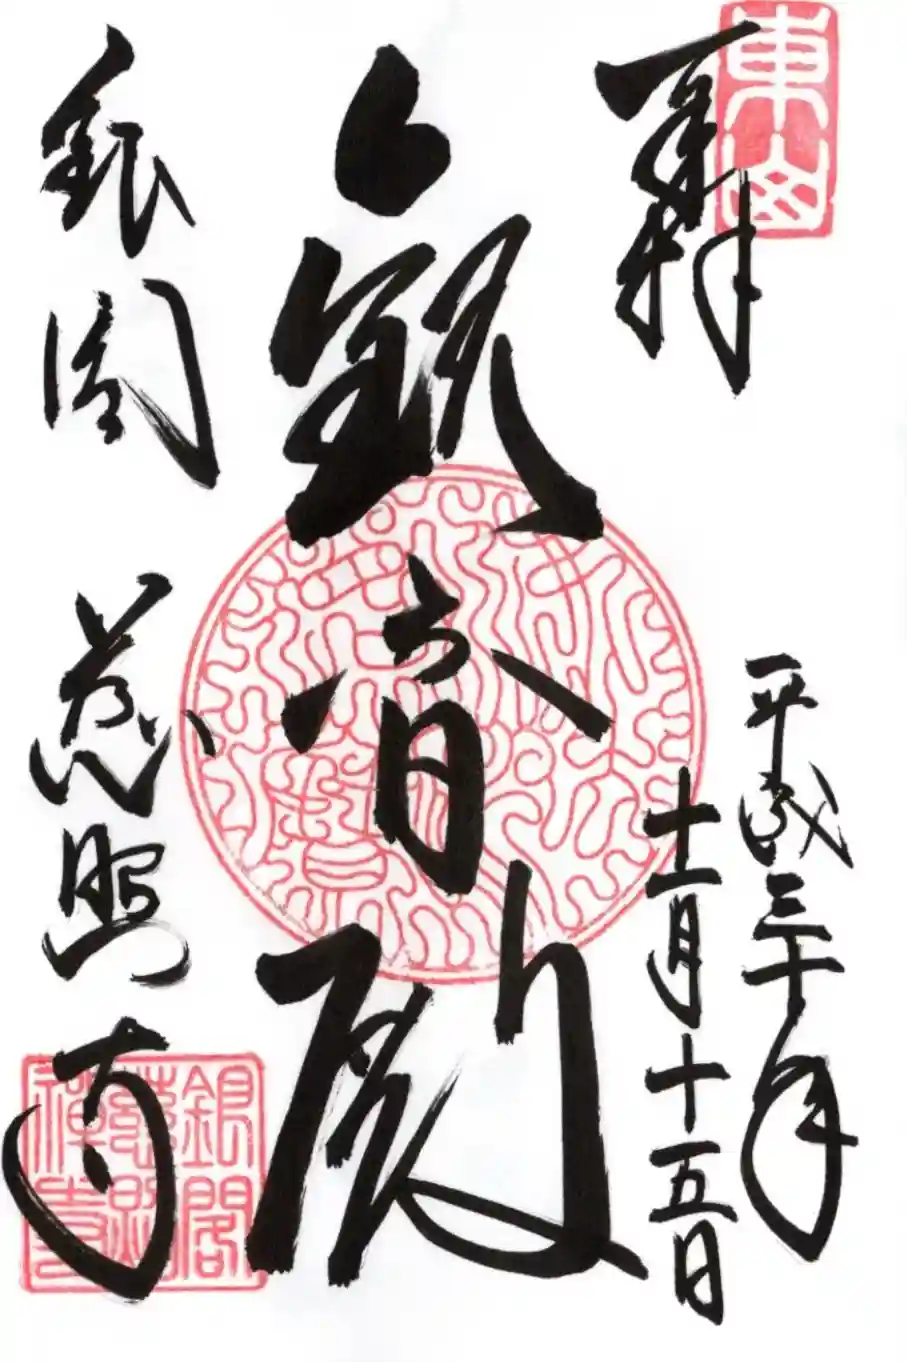 東山
奉拝
平成三十年
十二月十五日
観音殿
銀閣 慈照寺
銀閣
慈照
禅寺